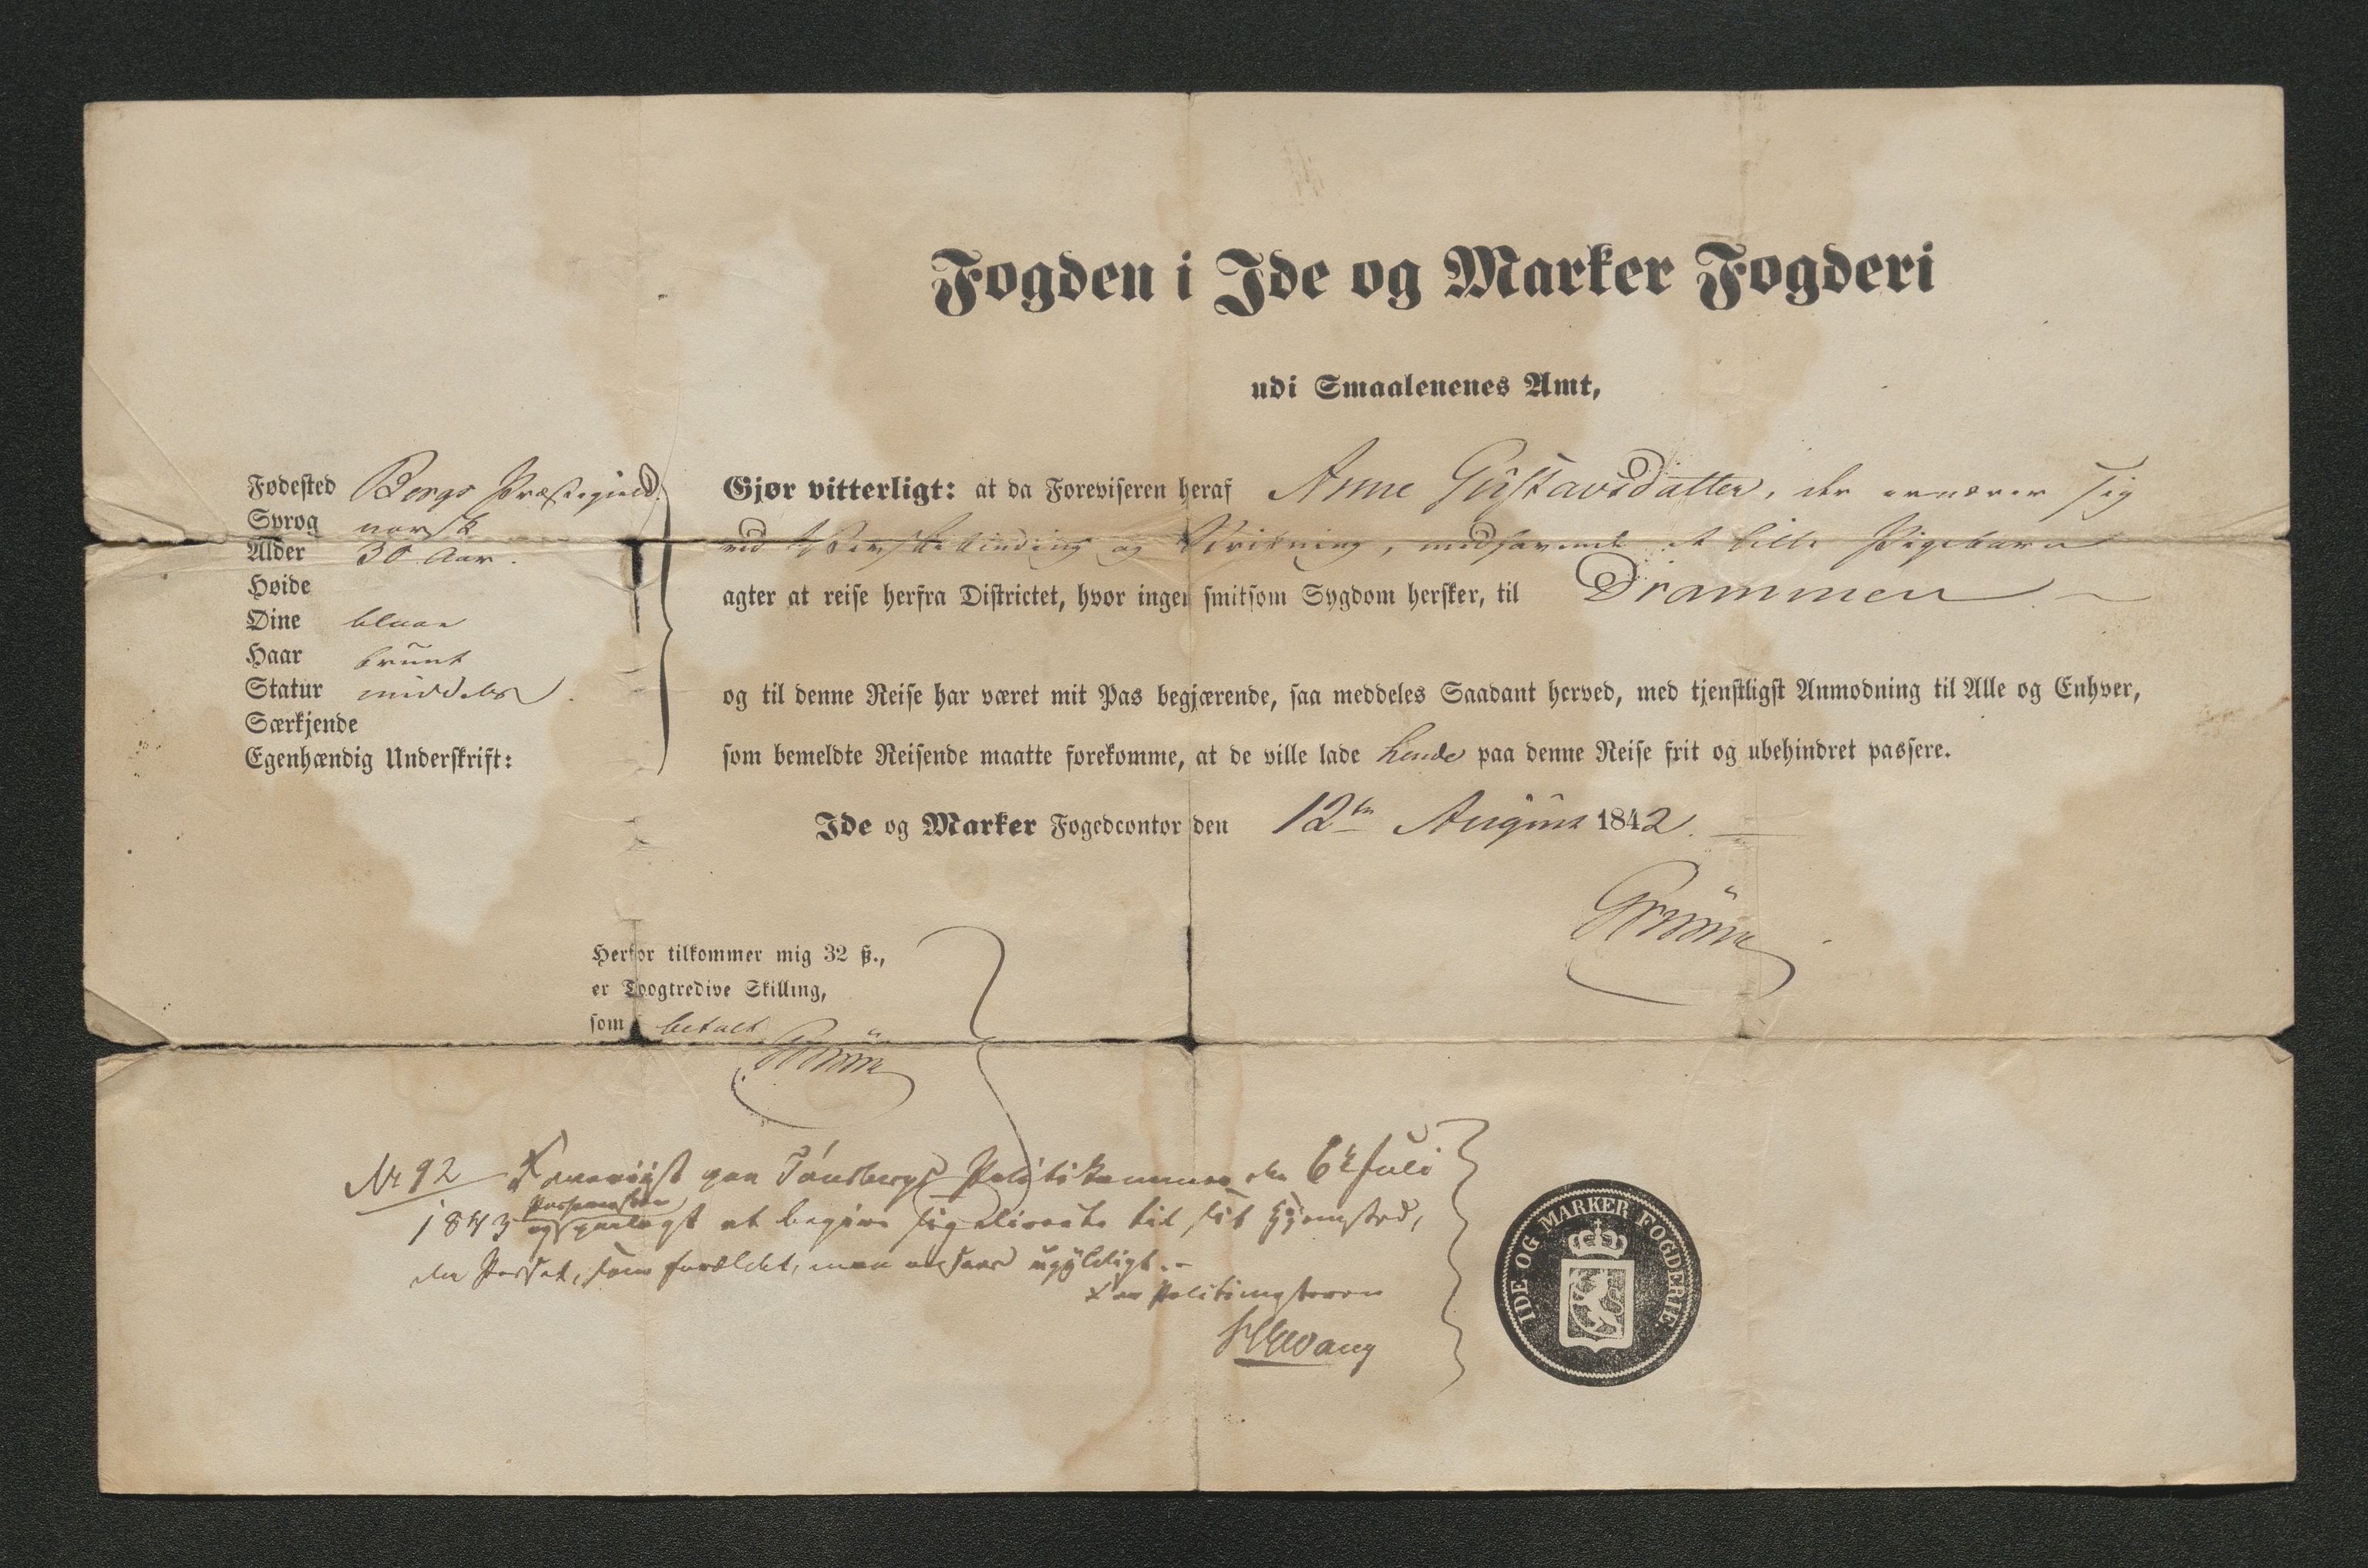 Fogden i Ide og Marker Fogderi
udi Smaalenenes Amt,
Fødested Bergs Præstegield
Sprog norsk
Alder 30 Aar.
Høide
Øine blaae
Haar brunt
Statur middels.
Særkjende
Egenhændig Underskrift:
Gjør vitterligt: at da Foreviseren heraf Anne Gustavsdatter, der ernærer sig
ved og medhavende et lille Pigebarn
agter at reise herfra Districtet, hvor ingen smitsom Sygdom hersker, til Drammen
og til denne Reise har været mit Pas begjærende, saa meddeles Saadant herved, med tjenstligst Anmodning til Alle og Enhver,
som bemeldte Reisende maatte forekomme, at de ville lade hende paa denne Reise frit og ubehindret passere.
Ide og Marker Fogedcontor den 12te August 1842.
Herfor tilkommer mig 32 ß.,
er Toogtredive Skilling,
som betalt
No 92 Foreviist paa Tønsbergs Politikammer den 6te Juli
1843 og paalagt at begive sig directe til sit Hjemsted,
da Passet, som forældet, maa ansees ugyldigt.-
For Politimesteren
IDE OG MARKER FOGDERIE.